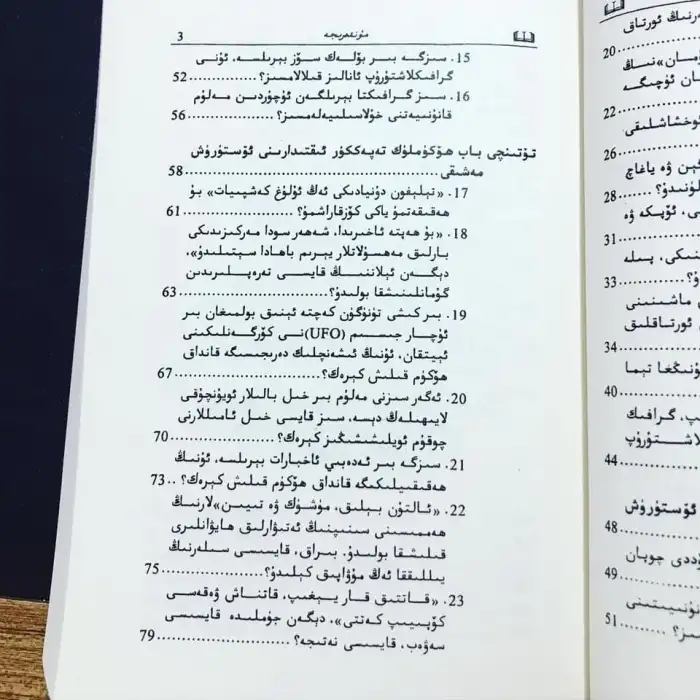 مۇندەرىجە 3
15. سىزگە بىر بۆلەك سۆز بېرىلسە، ئۇنى
گرافىكلاشتۇرۇپ ئانالىز قىلالامسىز؟ 52
16. سىز گرافىكتا بېرىلگەن ئۇچۇردىن مەلۇم
قانۇنىيەتنى خۇلاسىلىيەلەمسىز؟ 56
تۆتىنچى باب ھۆكۈملۈك تەپەككۇر ئىقتىدارىنى ئۆستۈرۈش
مەشىقى 58
17. «تېلېفون دۇنيادىكى ئەڭ ئۇلۇغ كەشپىيات» بۇ
ھەقىقەتمۇ ياكى كۆزقاراشمۇ؟ 61
18. «بۇ ھەپتە ئاخىرىدا، شەھەر سودا مەركىزىدىكى
بارلىق مەھسۇلاتلار يېرىم باھادا سېتىلىدۇ»،
دېگەن ئېلاننىڭ قايسى تەرەپلىرىدىن
گۇمانلىنىشقا بولىدۇ؟ 63
19. بىر كىشى تۈنۈگۈن كەچتە ئېنىق بولمىغان بىر
ئۇچار جىسىم (UFO)نى كۆرگەنلىكىنى
ئېيتقان، ئۇنىڭ ئىشەنچلىك دەرىجىسىگە قانداق
ھۆكۈم قىلىش كېرەك؟ 67
20. ئەگەر سىزنى مەلۇم بىر خىل باللار ئويۇنچۇقى
لايىھىلەڭ دېسە، سىز قايسى خىل ئامىللارنى
چوقۇم ئويلىشىشىڭىز كېرەك؟ 70
21. سىزگە بىر ئەدەبىي ئاخبارات بېرىلسە، ئۇنىڭ
ھەقىقىيلىكىگە قانداق ھۆكۈم قىلىش كېرەك؟ 73
22. «ئالتۇن بېلىق، مۈشۈك ۋە تىيىن»لارنىڭ
ھەممىسىنى سىنىپنىڭ ئەتىۋارلىق ھايۋانلىرى
قىلىشقا بولىدۇ. بىراق، قايسىسى سىلەرنىڭ
يىللىققا ئەڭ مۇۋاپىق كېلىدۇ؟ 75
23. «قاتتىق قار يېغىپ، قاتناش ۋەقەسى
كۆپىيىپ كەتتى»، دېگەن جۈملىدە قايسىسى
سەۋەب، قايسىسى نەتىجە؟ 79
ەرنىڭ ئورتاق
20
مان»نىڭ
ان ئۈچىگە
22
وخشاشلىقى
26
ئېن ۋە ياغاچ
لۇنىدۇ؟ 28
ى، ئۆپكە ۋە
31
ىنىكى، پىلە
؟ 33
ماشىنىنى
ئورتاقلىق
34
ۇنىڭغا تېما
40
پ، گرافىك
لاشتۇرۇپ
44
ئۆستۈرۈش
48
ۇددى چوپان
49
نۇنىيىتىنى
سىز؟ 51